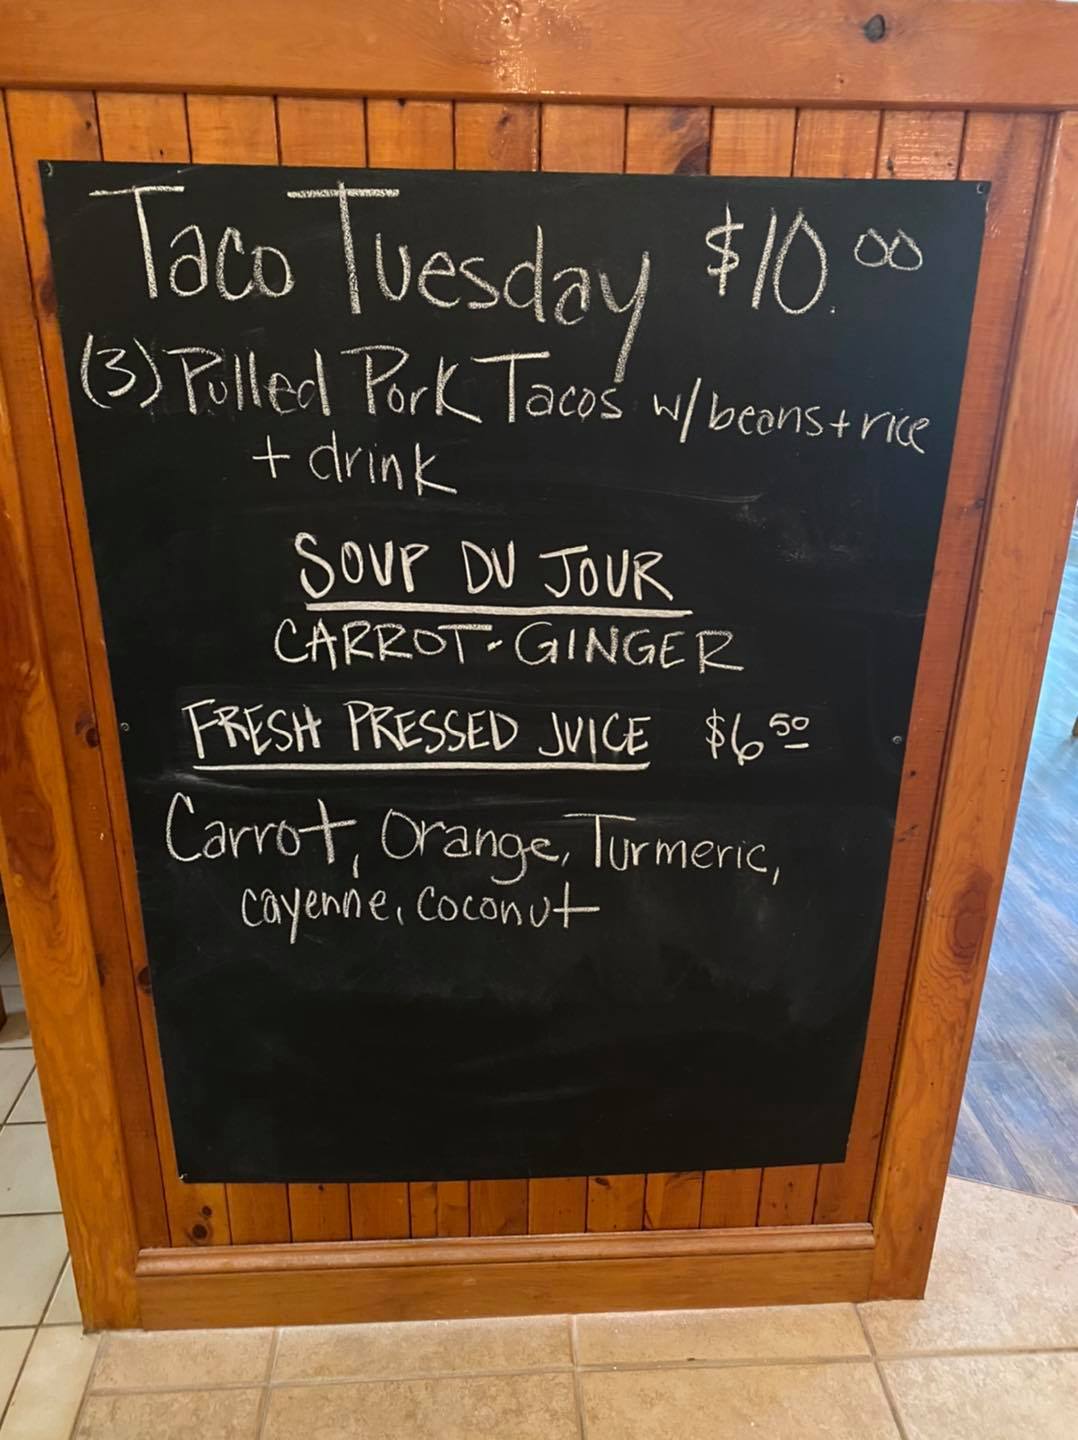 Taco Tuesday $10.00
(3) Pulled Pork Tacos w/ beans + rice
+ drink
SOUP DU JOUR
CARROT-GINGER
FRESH PRESSED JUICE $6 50
Carrot, Orange, Turmeric,
cayenne, coconut